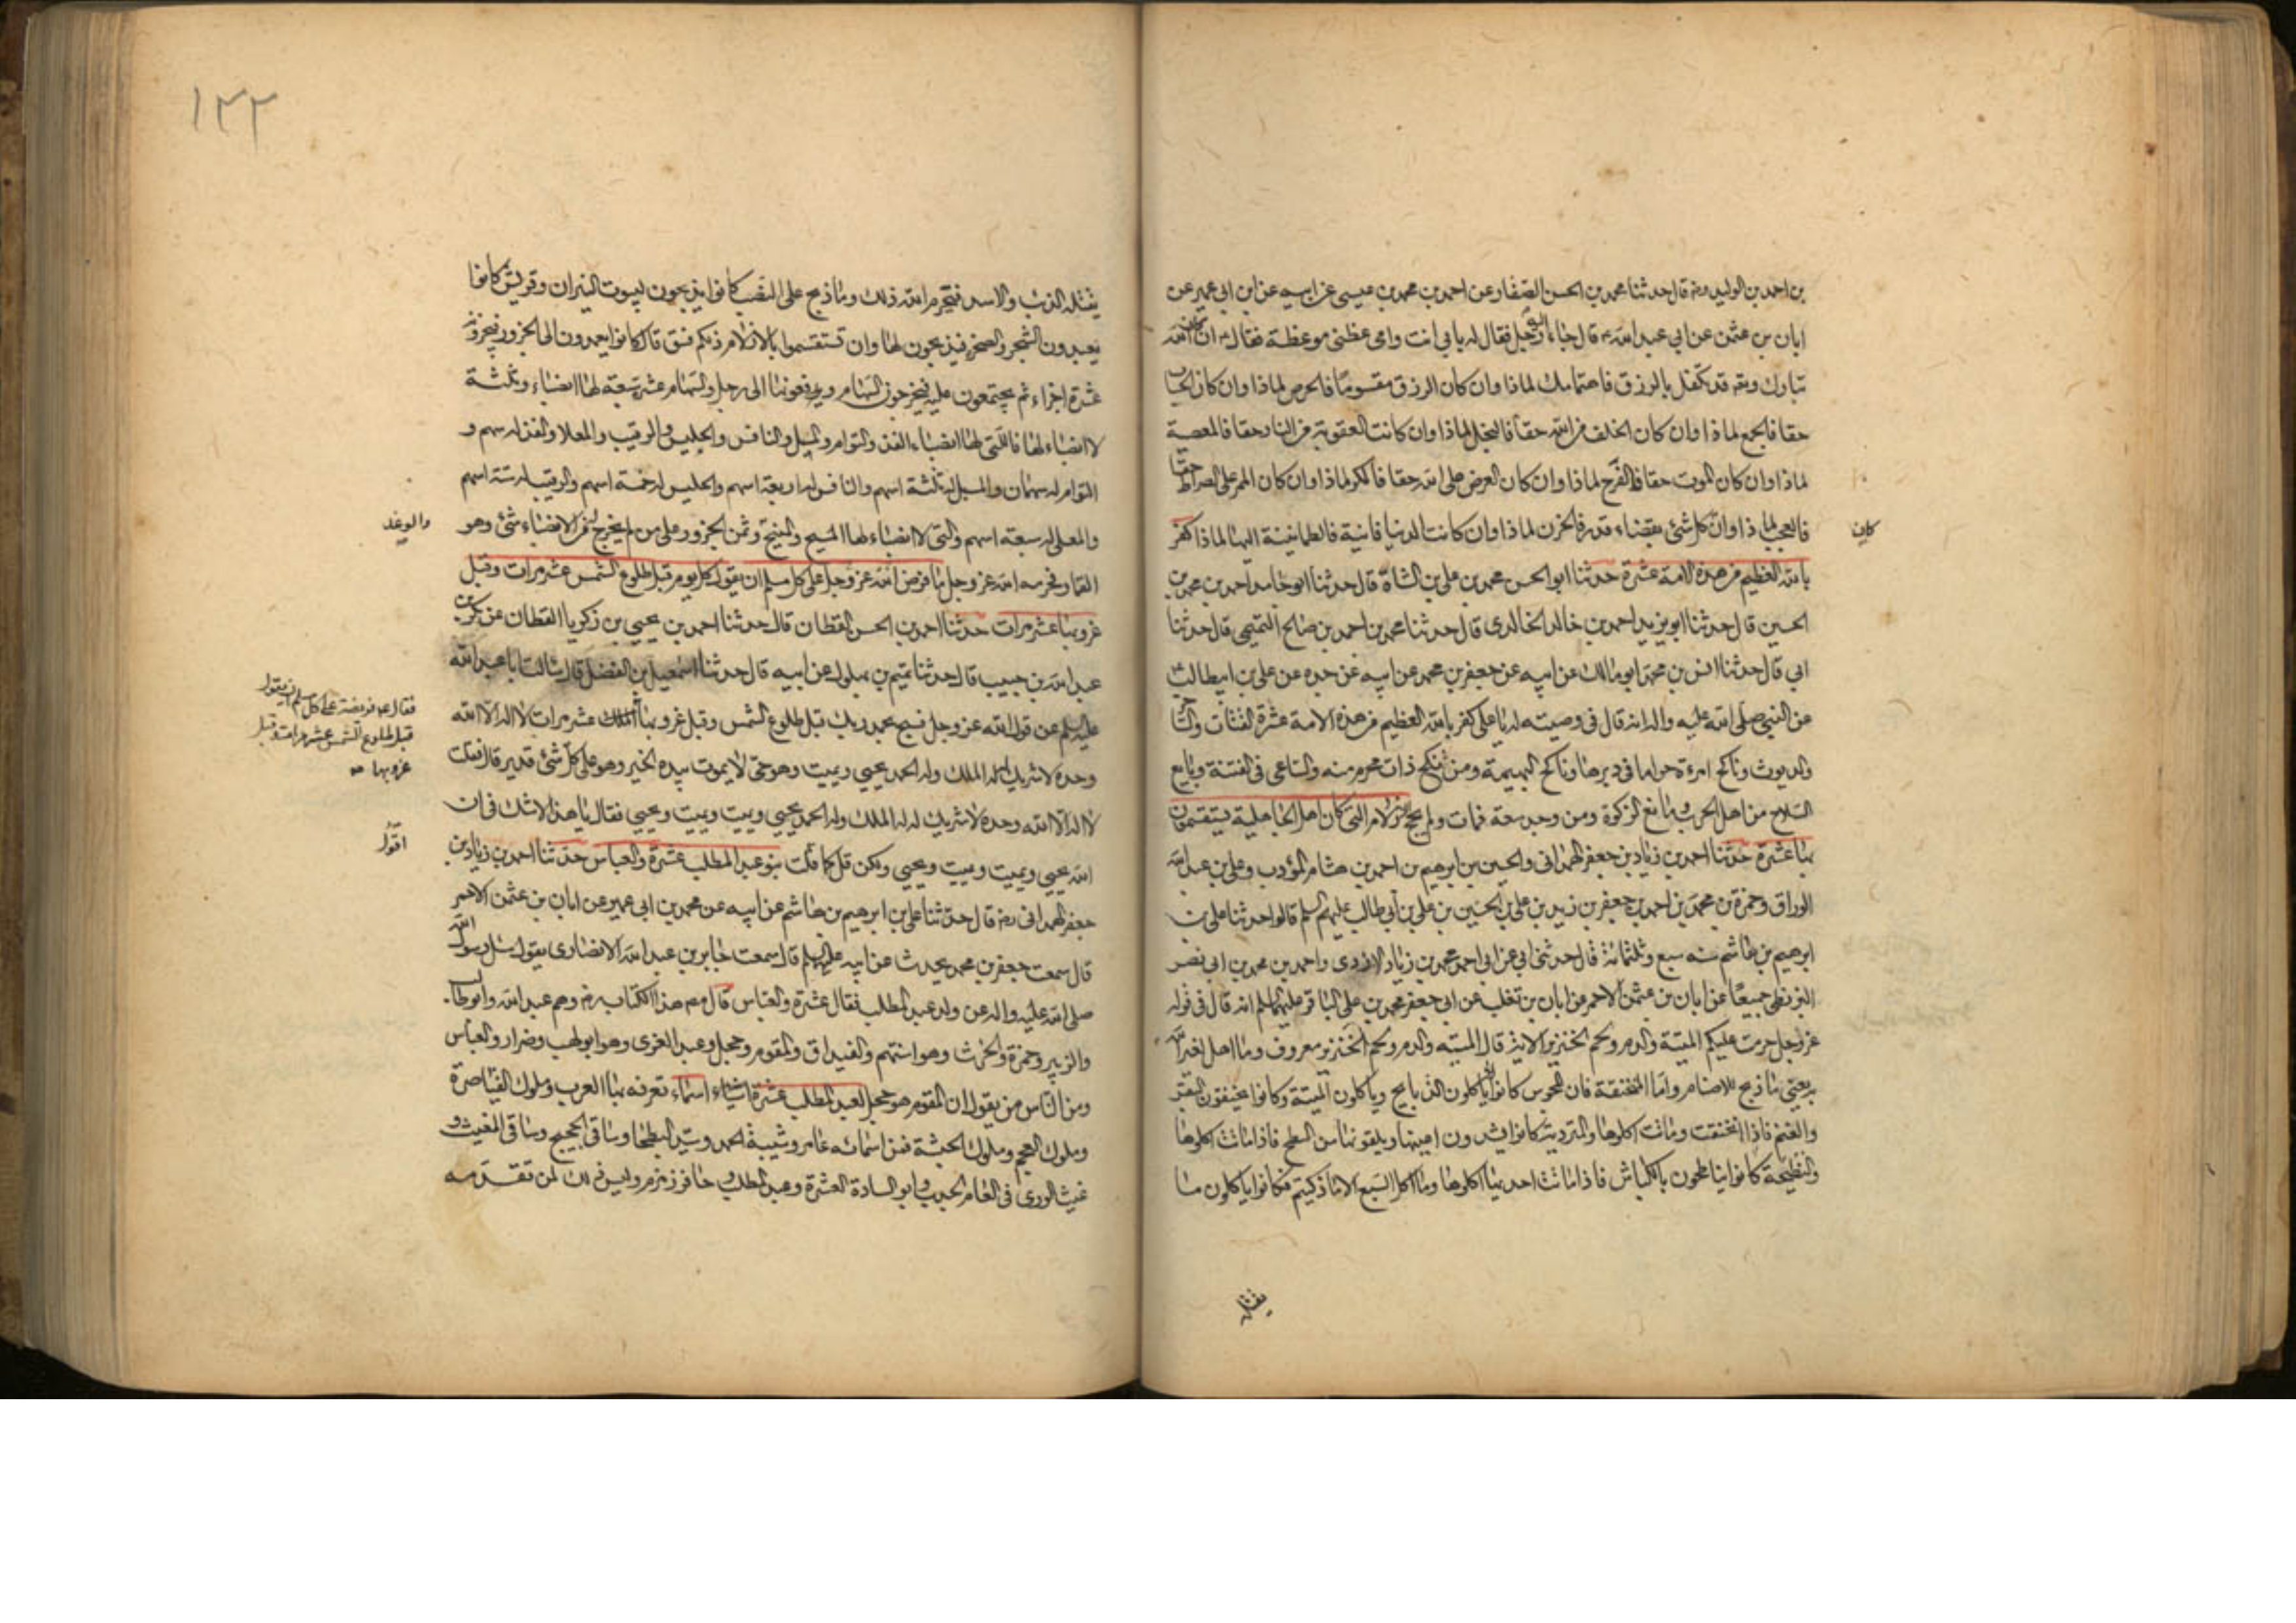 بن احمد بن الوليد رضه قال حدثنا محمد بن الحسن الصفار عن احمد بن محمد بن عيسى عن ابيه عن ابن ابي عمير عن
ابان بن عثمن عن ابي عبد الله ع قال جاء اليه رجل فقال له بابي انت وامي عظني موعظة فقال ع ان كان الله
تبارك وتع قد تكفل بالرزق فاهتمامك لماذا وان كان الرزق مقسوما فالحرص لماذا وان كان الحساب
حقا فالجمع لماذا وان كان الخلف من الله حقا فالبخل لماذا وان كانت العقوبة من النار حقا فالمعصية
لماذا وان كان الموت حقا فالفرح لماذا وان كان العرض على الله حقا فالمكر لماذا وان كان الممر على الصراط حقا
فالعجب لماذا وان كل شئ بقضاء وقدر فالحزن لماذا وان كانت الدنيا فانية فالطمانينة اليها لماذا كفر
كان
بالله العظيم من هذه الامة عشرة حدثنا ابو الحسن محمد بن علي بن الشاة قال حدثنا ابو حامد احمد بن محمد بن
الحسين قال حدثنا ابو يزيد احمد بن خالد الخالدى قال حدثنا محمد بن احمد بن صالح التميمي قال حدثنا
ابي قال حدثنا انس بن محمد ابو مالك عن ابيه عن جعفر بن محمد عن ابيه عن جده عن علي بن ابيطالب ع
عن النبي صلى الله عليه واله انه قال في وصيته له يا علي كفر بالله العظيم من هذه الامة عشرة القتات والساحر
والديوث وناكح امرءة حراما في دبرها وناكح البهيمة ومن نكح ذات محرم منه والساعي في الفتنة وبايع
السلاح من اهل الحرب ومانع الزكوة ومن وجد سعة فمات ولم يحج الازلام التي كان اهل الجاهلية يستقسمون
بها عشرة حدثنا احمد بن زياد بن جعفر الهمداني والحسين بن ابرهيم بن احمد بن هشام المؤدب وعلي بن عبد الله
الوراق وحمزة بن محمد بن احمد بن جعفر بن زيد بن علي بن الحسين بن علي بن ابي طالب عليهم السلم قالوا حدثنا علي بن
ابرهيم بن هاشم سنه سبع وثلثمائة قال حدثني ابي عن ابي احمد محمد بن زياد الازدى واحمد بن محمد بن ابي نصر
البزنطي جميعا عن ابان بن عثمن الاحمر عن ابان بن تغلب عن ابي جعفر محمد بن علي الباقر عليهما السلم انه قال في قوله
عز وجل حرمت عليكم الميتة والدم ولحم الخنزير الاية قال الميته والدم ولحم الخنزير معروف وما اهل لغير الله
به يعني ما ذبح للاصنام واما المنخنقة فان المجوس كانوا لا ياكلون الذبايح وياكلون الميتة وكانوا يخنقون البقر
والغنم فاذا انخنقت وماتت اكلوها والمتردية كانوا يشدون اعينها ويلقونها من السطح فاذا ماتت اكلوها
والنطيحة كانوا يناطحون بالكباش فاذا ماتت احديها اكلوها وما اكل السبع الا ما ذكيتم فكانوا ياكلون ما
يقتله
١٢٢
يقتله الذئب والاسد فيحرم الله ذلك وما ذبح على النصب كانوا يذبحون لبيوت النيران وقريش كانوا
يعبدون الشجر والصخر فيذبحون لها وان تستقسموا بالازلام ذلكم فسق قال كانوا يعمدون الى الجزور فيجزونه
عشرة اجزاء ثم يجتمعون عليه فيخرجون السهام ويدفعونها الى رجل والسهام عشرة سبعة لها انصباء وثلثة
لا انصباء لها فالتي لها انصباء الفذ والتوام والمسبل والنافس والحليس والرقيب والمعلا والفذ له سهم و
التوام له سهمان والمسبل له ثلثة اسهم والنافس له اربعة اسهم والحليس له خمسة اسهم والرقيب له ستة اسهم
والمعلى له سبعة اسهم والتي لا انصباء لها السفيح والمنيح وثمن الجزور على من لم يخرج له من الانصباء شئ وهو
والوغد
القمار فحرمه الله عز وجل ما فرض الله عز وجل على كل مسلم ان يقول كل يوم قبل طلوع الشمس عشر مرات وقبل
غروبها عشر مرات حدثنا احمد بن الحسن القطان قال حدثنا احمد بن يحيى بن زكريا القطان عن بكر بن
عبد الله بن حبيب قال حدثنا تميم بن بهلول عن ابيه قال حدثنا اسمعيل بن الفضل قال سالت ابا عبد الله
عليه السلم عن قول الله عز وجل فسبح بحمد ربك قبل طلوع الشمس وقبل غروبها عشر مرات لا اله الا الله
فقال ع فريضة على كل مسلم ان يقول
قبل طلوع الشمس عشر مرات وقبل
غروبها صح
وحده لا شريك له له الملك وله الحمد يحيي ويميت وهو حي لا يموت بيده الخير وهو على كل شئ قدير قال فقلت
لا اله الا الله وحده لا شريك له له الملك وله الحمد يحيي ويميت ويميت ويحيي فقال يا هذا لا شك في ان
الله يحيي ويميت ويميت ويحيي ولكن قل كما اقول بنو عبد المطلب عشرة والعباس حدثنا احمد بن زياد بن
اقول
جعفر الهمداني رضه قال حدثنا علي بن ابرهيم بن هاشم عن ابيه عن محمد بن ابي عمير عن ابان بن عثمن الاحمر
قال سمعت جعفر بن محمد يحدث عن ابيه عليهما السلم قال سمعت جابر بن عبد الله الانصارى يقول سئل رسول الله
صلى الله عليه واله عن ولد عبد المطلب فقال عشرة والعباس قال مص هذا الكتاب رضه وهم عبد الله وابو طالب
والزبير وحمزة والحرث وهو اسنهم والغيداق والمقوم وحجل وعبد العزى وهو ابو لهب وضرار والعباس
ومن الناس من يقول ان المقوم هو حجل لعبد المطلب عشرة اسماء تعرفه بها العرب وملوك القياصرة
وملوك العجم وملوك الحبشة فمن اسمائه عامر وشيبة الحمد وسيد البطحا وساقي الحجيج وساقي المغيث و
غيث الورى في العام الجدب وابو السادة العشرة وعبد المطلب وحافر زمزم وليس ذلك لمن تقدمه